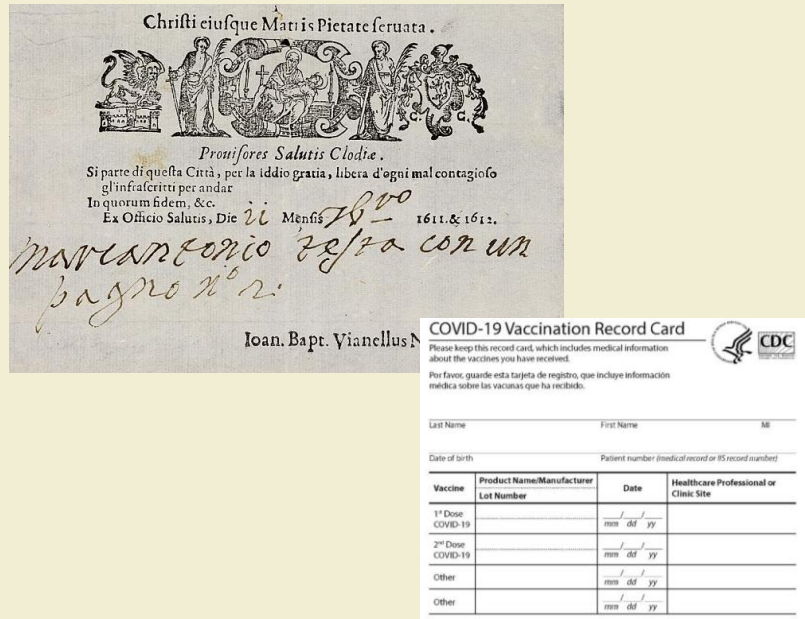 Christi eiusque Matris Pietate seruata.
C. C.
Prouisores Salutis Clodiæ.
Si parte di questa Città, per la Iddio gratia, libera d'ogni mal contagioso
gl'infrascritti per andar
In quorum fidem, &c.
Ex Officio Salutis, Die ii Mensis 7b vo 1611.& 1612.
marcantonio testa con un
pagno nº 2.
Ioan. Bapt. Vianellus N
COVID-19 Vaccination Record Card
Please keep this record card, which includes medical information
about the vaccines you have received.
Por favor, guarde esta tarjeta de registro, que incluye información
médica sobre las vacunas que ha recibido.
CDC
Last Name First Name MI
Date of birth Patient number (medical record or IIS record number)
Vaccine Product Name/Manufacturer Date Healthcare Professional or
Lot Number Clinic Site
1st Dose
COVID-19
__/__/__
mm dd yy
2nd Dose
COVID-19
__/__/__
mm dd yy
Other
__/__/__
mm dd yy
Other
__/__/__
mm dd yy